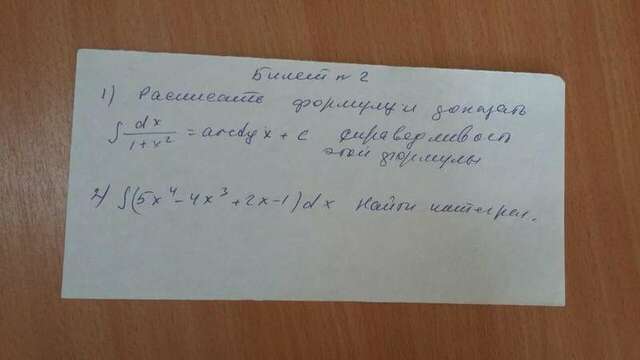 Билет № 2
1) Расписать формулу и доказать
∫ dx/(1+x²) = arctg x + c справедливость
этой формулы
2) ∫(5x⁴-4x³+2x-1)dx Найти интеграл.